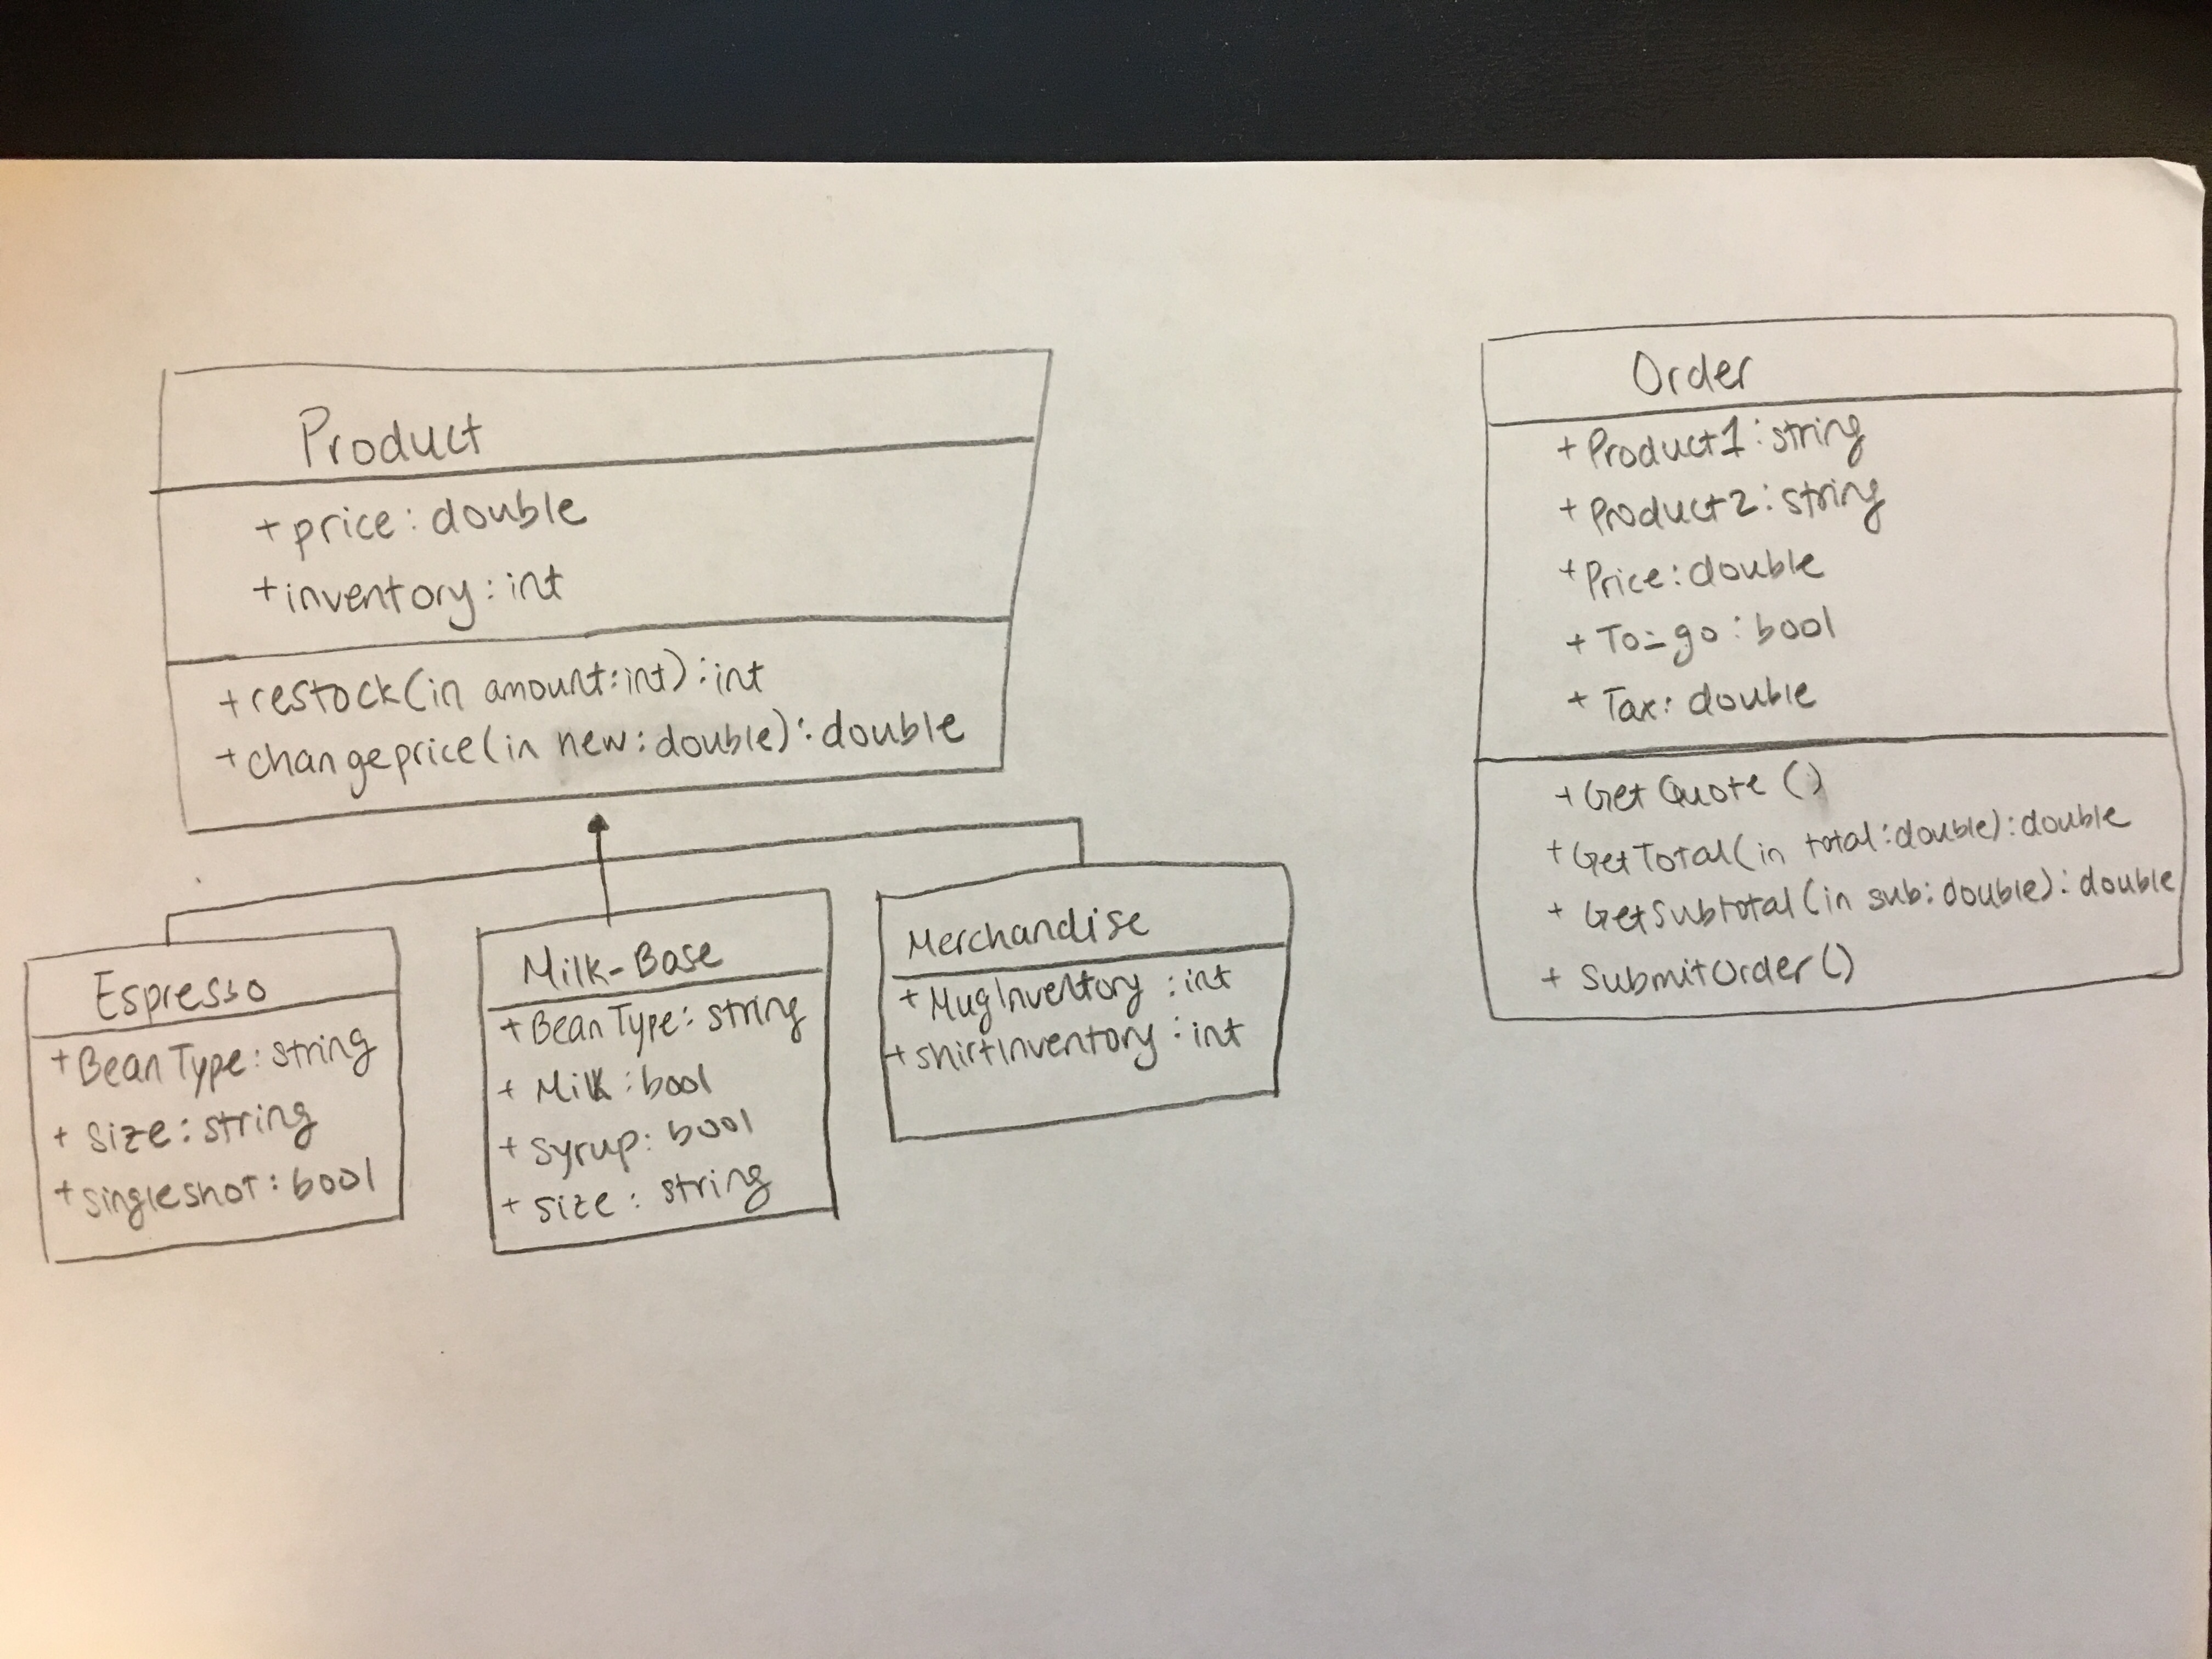 Product
+price: double
+inventory: int
+restock(in amount:int):int
+changeprice(in new:double):double
Espresso
+BeanType: string
+ size: string
+singleshot: bool
Milk-Base
+BeanType: string
+ Milk: bool
+ syrup: bool
+ size: string
Merchandise
+MugInventory: int
+shirtInventory: int
Order
+Product1: string
+Product2: string
+Price: double
+ To-go: bool
+ Tax: double
+GetQuote()
+GetTotal(in total:double):double
+ GetSubtotal(in sub:double):double
+ SubmitOrder()